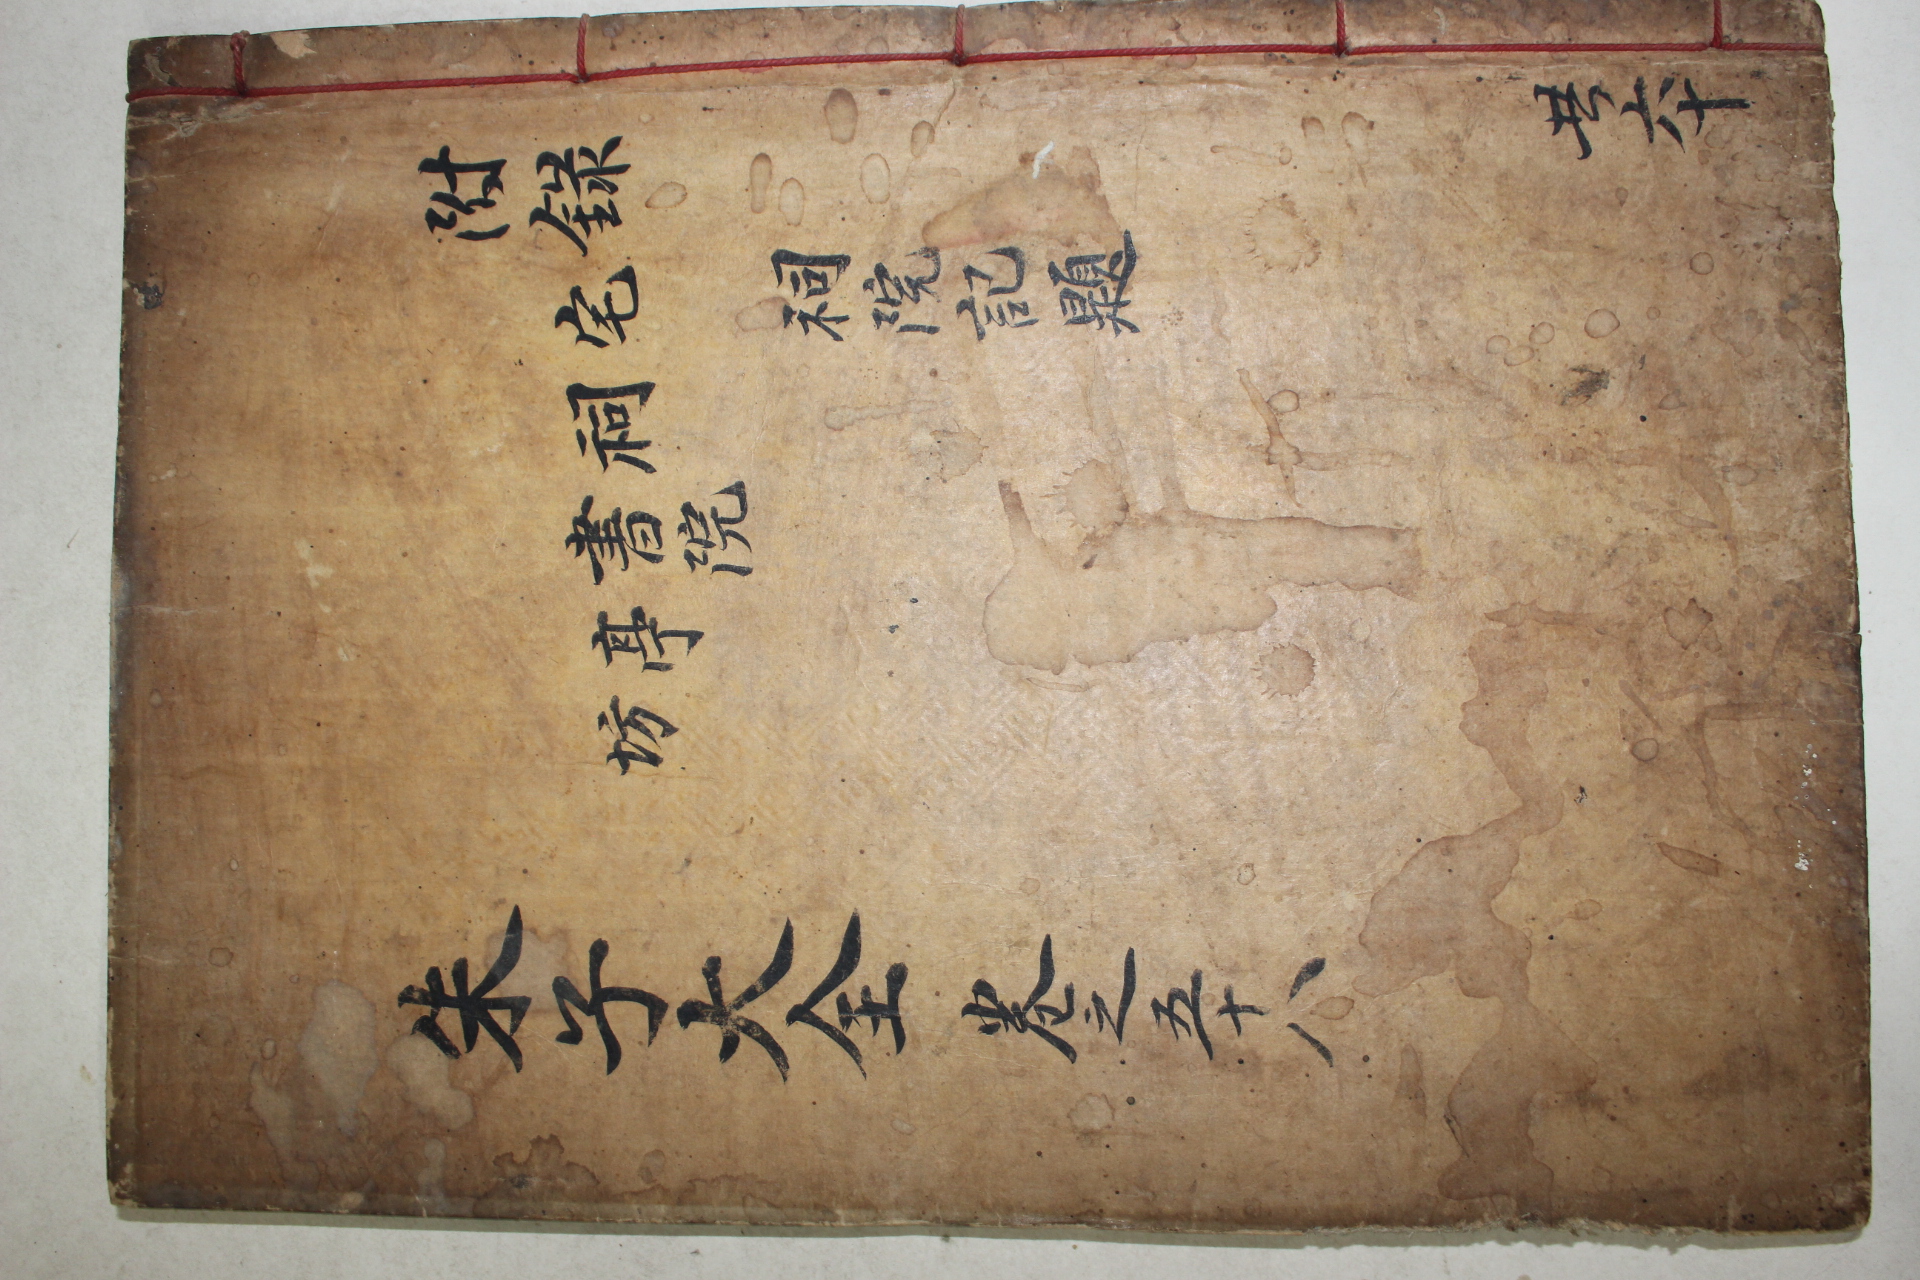 附錄
共六十
宅
祠院記題
祠
書院
亭
坊
朱子大全 卷之五十八